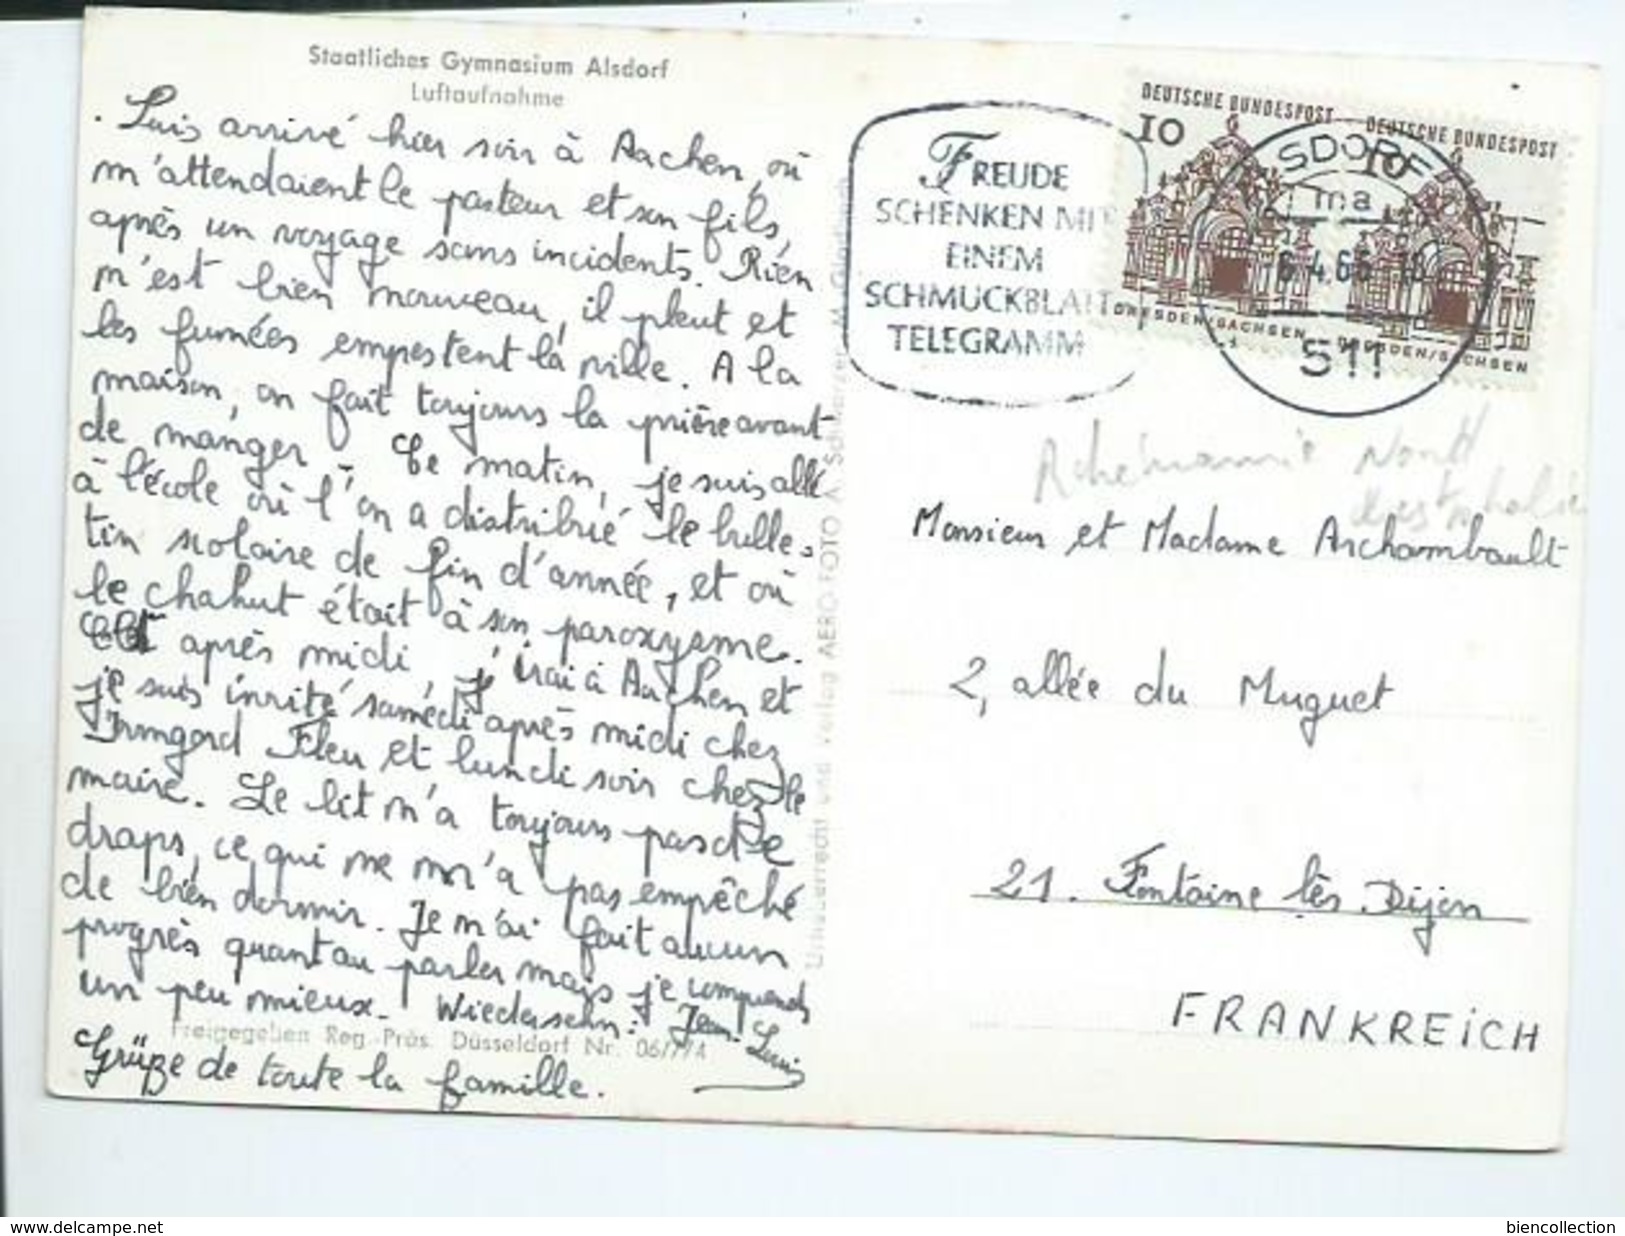 Staatliches Gymnasium Alsdorf
Luftaufnahme
. Suis arrivé hier soir à Aachen, où
m'attendaient le pasteur et son fils,
après un voyage sans incidents. Rien
n'est bien nouveau, il pleut et
les fumées empestent la ville. A la
maison, on fait toujours la prière avant
de manger. Ce matin, je suis allé
à l'école où l'on a distribué le bulle-
tin scolaire de fin d'année, et où
le chahut était à son paroxysme.
après midi, j'irai à Aachen et
je suis invité samedi après midi chez
Irmgard Fleu et lundi soir chez le
maire. Le lit n'a toujours pas de
draps, ce qui ne m'a pas empêché
de bien dormir. Je n'ai fait aucun
progrès quant au parler mais je comprends
un peu mieux. Wiedersehn: Jean-Louis
Freigegeben Reg.-Präs. Düsseldorf Nr. 06/774
Grüße de toute la famille.
Urheberrecht und Verlag AERO-FOTO A. Schwarzer, M. Gladbach
FREUDE
SCHENKEN MIT
EINEM
SCHMUCKBLATT
TELEGRAMM
DEUTSCHE BUNDESPOST
10
DRESDEN/SACHSEN
DEUTSCHE BUNDESPOST
10
DRESDEN/SACHSEN
SDORF
ma
6.4.66 18
511
Rhénanie Nord
Westphalie
Monsieur et Madame Archambault
2, allée du Muguet
21. Fontaine lès Dijon
FRANKREICH
www.delcampe.net
biencollection